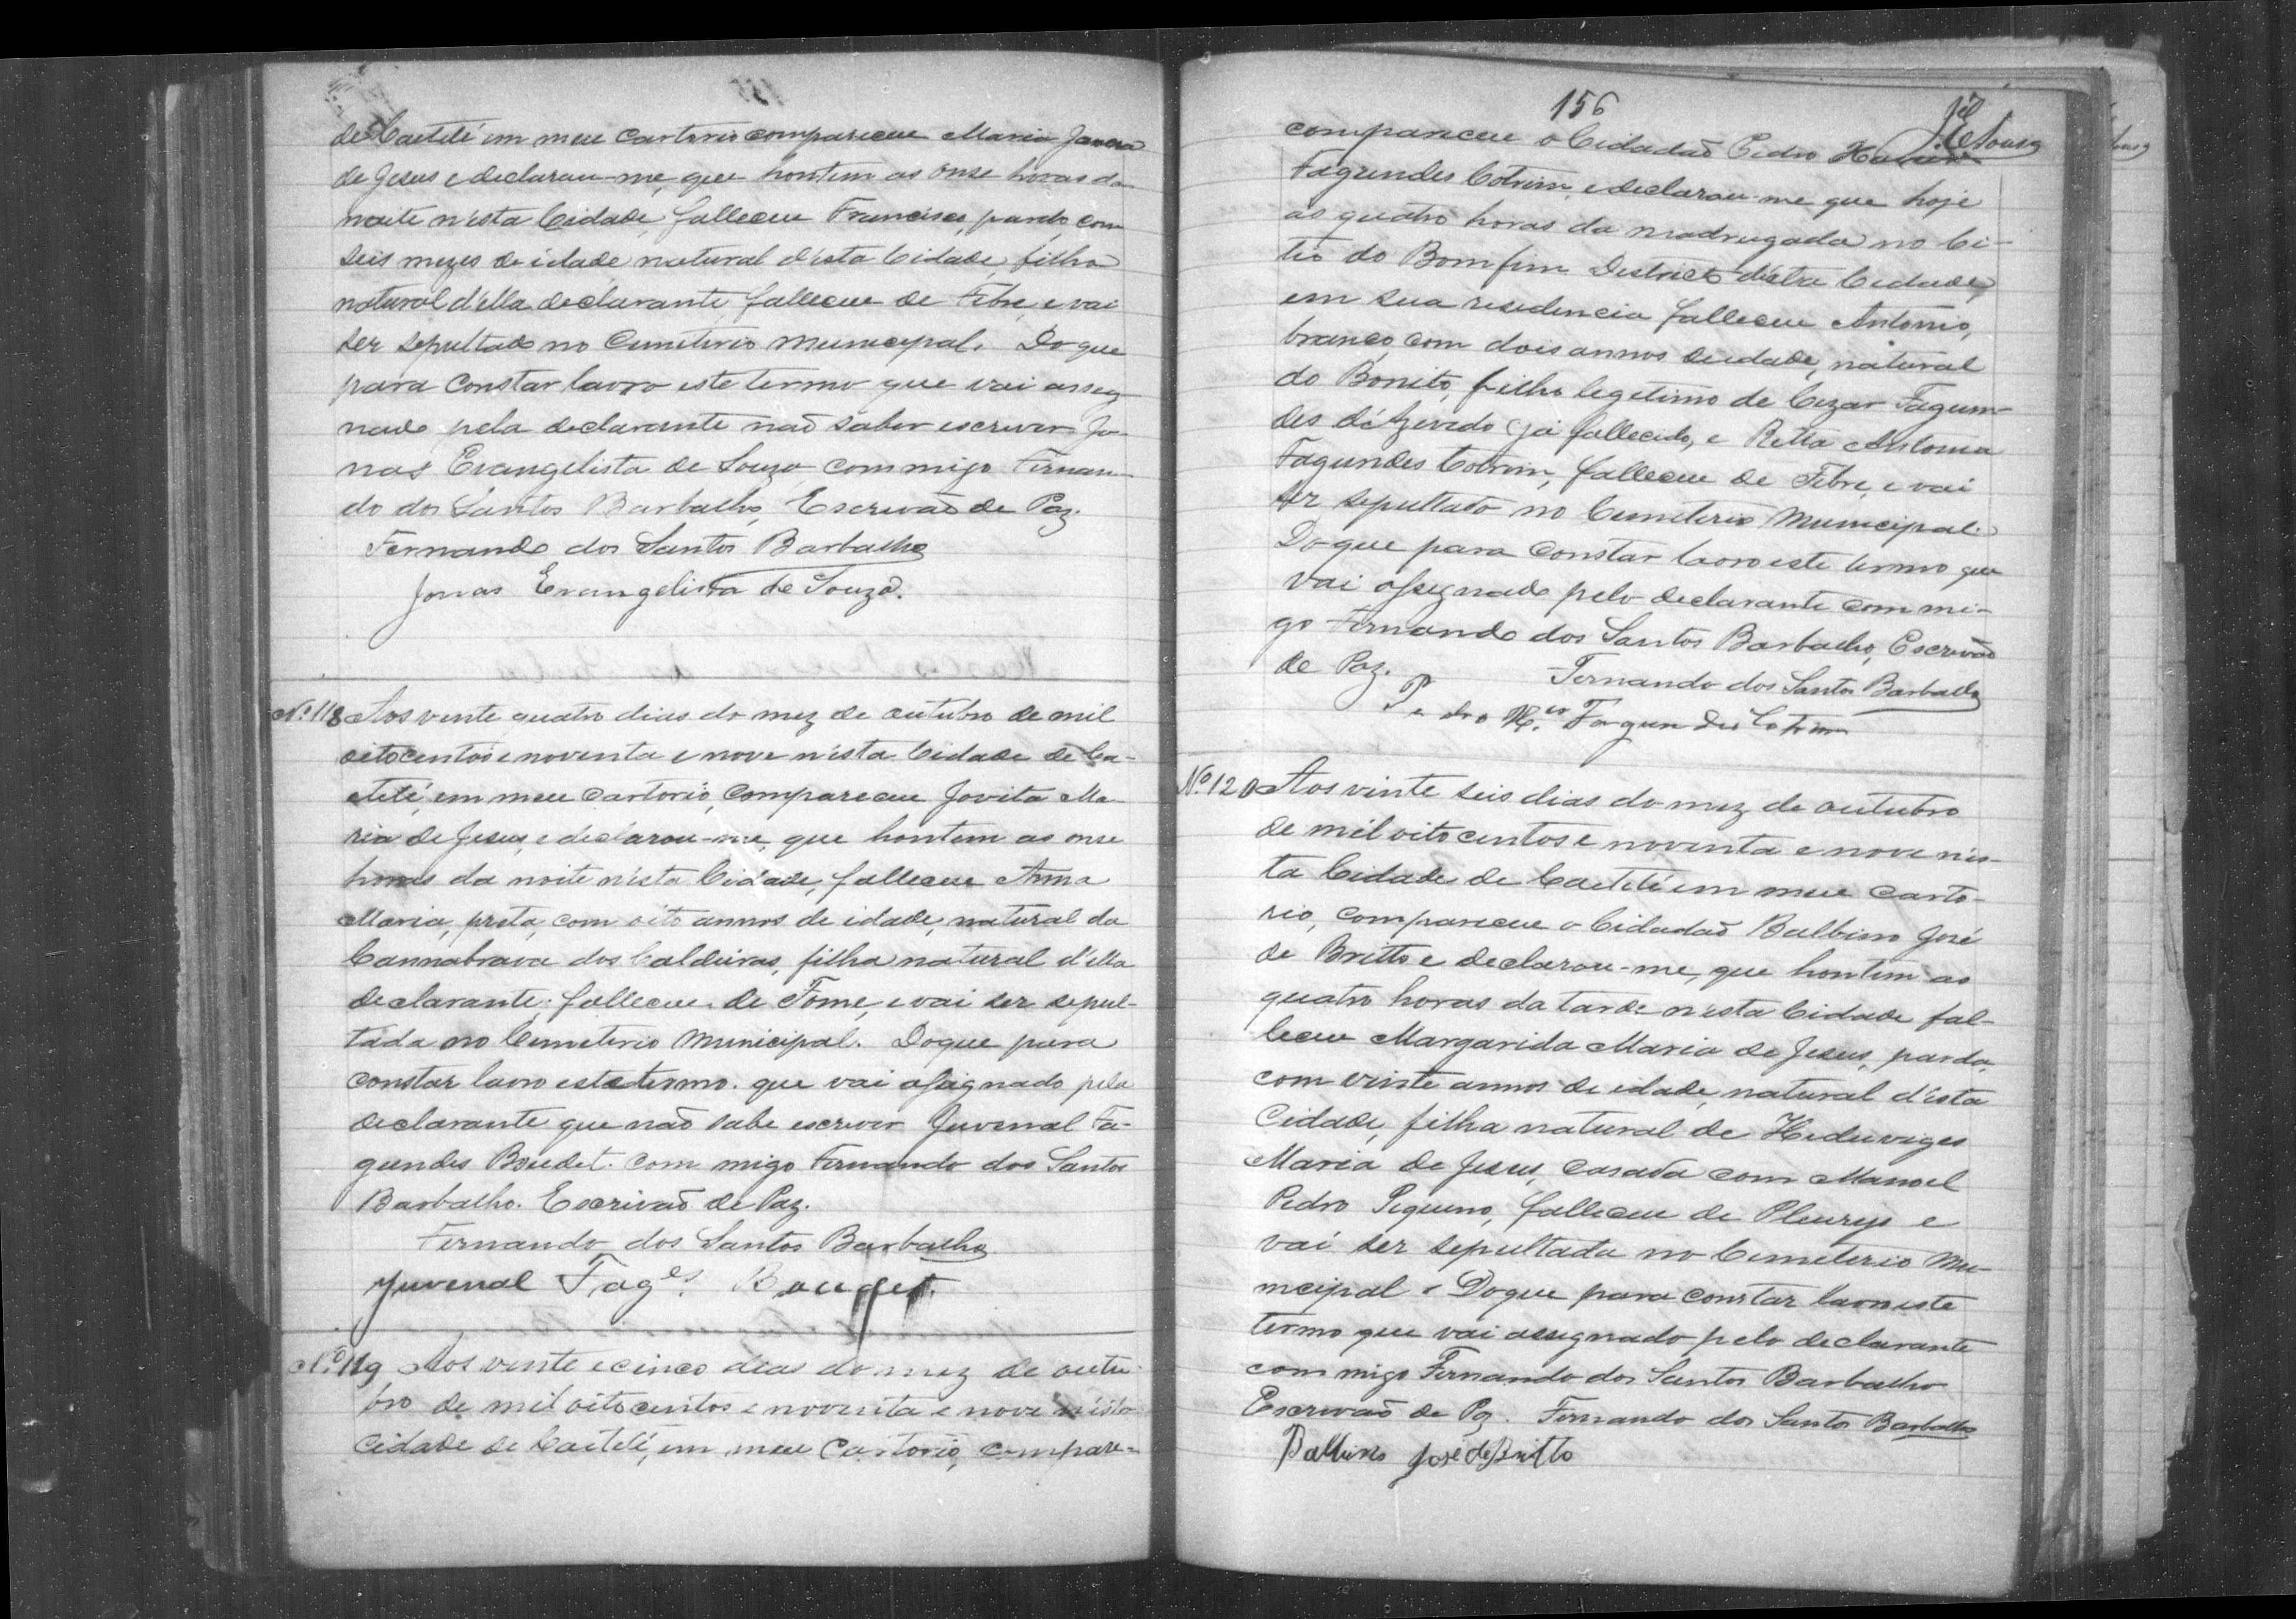 de Caetité em meu Cartorio compareceu Maria
de Jesus e declarou-me, que hontem as onse horas da
noite n'esta Cidade, falleceu Francisco, pardo, com
seis mezes de idade natural d'esta Cidade, filho
natural d'ella declarante, falleceu de Febre, e vai
ser sepultado no Cemiterio Municipal. Do que
para constar lavro este termo que vai asseg
nado pela declarante naõ saber escrever Jo-
nas Evangelista de Souza, commigo Fernan-
do dos Santos Barbalho, Escrivaõ de Paz.
Fernando dos Santos Barbalho
Jonas Evangelista de Souza.
Nº 118 Aos vente quatro dias do mez de outubro de mil
oitocentos e noventa e nove n'esta Cidade de Ca-
etité, em meu Cartorio, compareceu Jovita Ma-
ria de Jesus, e declarou-me, que hontem as onse
horas da noite n'esta Cidade, falleceu Anna
Maria, preta, com oito annos de idade, natural da
Cannabrava dos Caldeiras, filha natural d'ella
declarante; falleceu de Fome, e vai ser sepul-
tada no Cemeterio Municipal. Do que para
constar lavro este termo que vai assignado pela
declarante que naõ sabe escrever Juvenal Fa-
gundes Boudet. com migo Fernando dos Santos
Barbalho. Escrivaõ de Paz.
Fernando dos Santos Barbalho
Juvenal Fag.es
Nº 119 Aos vente e cinco dias do mez de outu-
bro de mil oitocentos e noventa e nove n'esta
Cidade de Caetité, em meu Cartorio, compare-
156
JESousa
compareceu o Cidadaõ Pedro
Fagundes Cotrim, e declarou-me que hoje
as quatro horas da madrugada no Ci-
tio do Bomfim Districto d'esta Cidade,
em sua residencia falleceu Antonio,
branco, com dois annos de idade, natural
do Bonito, filho legetimo de Cezar Fagun-
des d'Azevedo já fallecido, e Retta Antonia
Fagundes Cotrim, falleceu de Febre, e vai
ser sepultado no Cemeterio Municipal.
Do que para constar lavro este termo que
vai assegnado pelo declarante com mi-
go Fernando dos Santos Barbalho, Escrivaõ
de Paz. Fernando dos Santos Barbalho
Pedro Fargundes Cotrim
Nº 120 Aos vinte seis dias do mez de outubro
de mil oitocentos e noventa e nove n'es-
ta Cidade de Caetité em meu Carto-
rio, compareceu o Cidadaõ Balbino José
de Britto e declarou-me, que hontem as
quatro horas da tarde n'esta Cidade fal-
leceu Margarida Maria de Jesus, parda,
com vinte annos de idade, natural d'esta
Cidade, filha natural de Heduviges
Maria de Jesus, casada com Manoel
Pedro Pequeno, falleceu de Pleurys e
vai ser sepultada no Cemeterio Mu-
nicipal. Do que para constar lavro este
termo que vai assegnado pelo declarante
com migo Fernando dos Santos Barbalho
Escrivaõ de Paz. Fernando dos Santos Barbalho
Balbino José de Britto